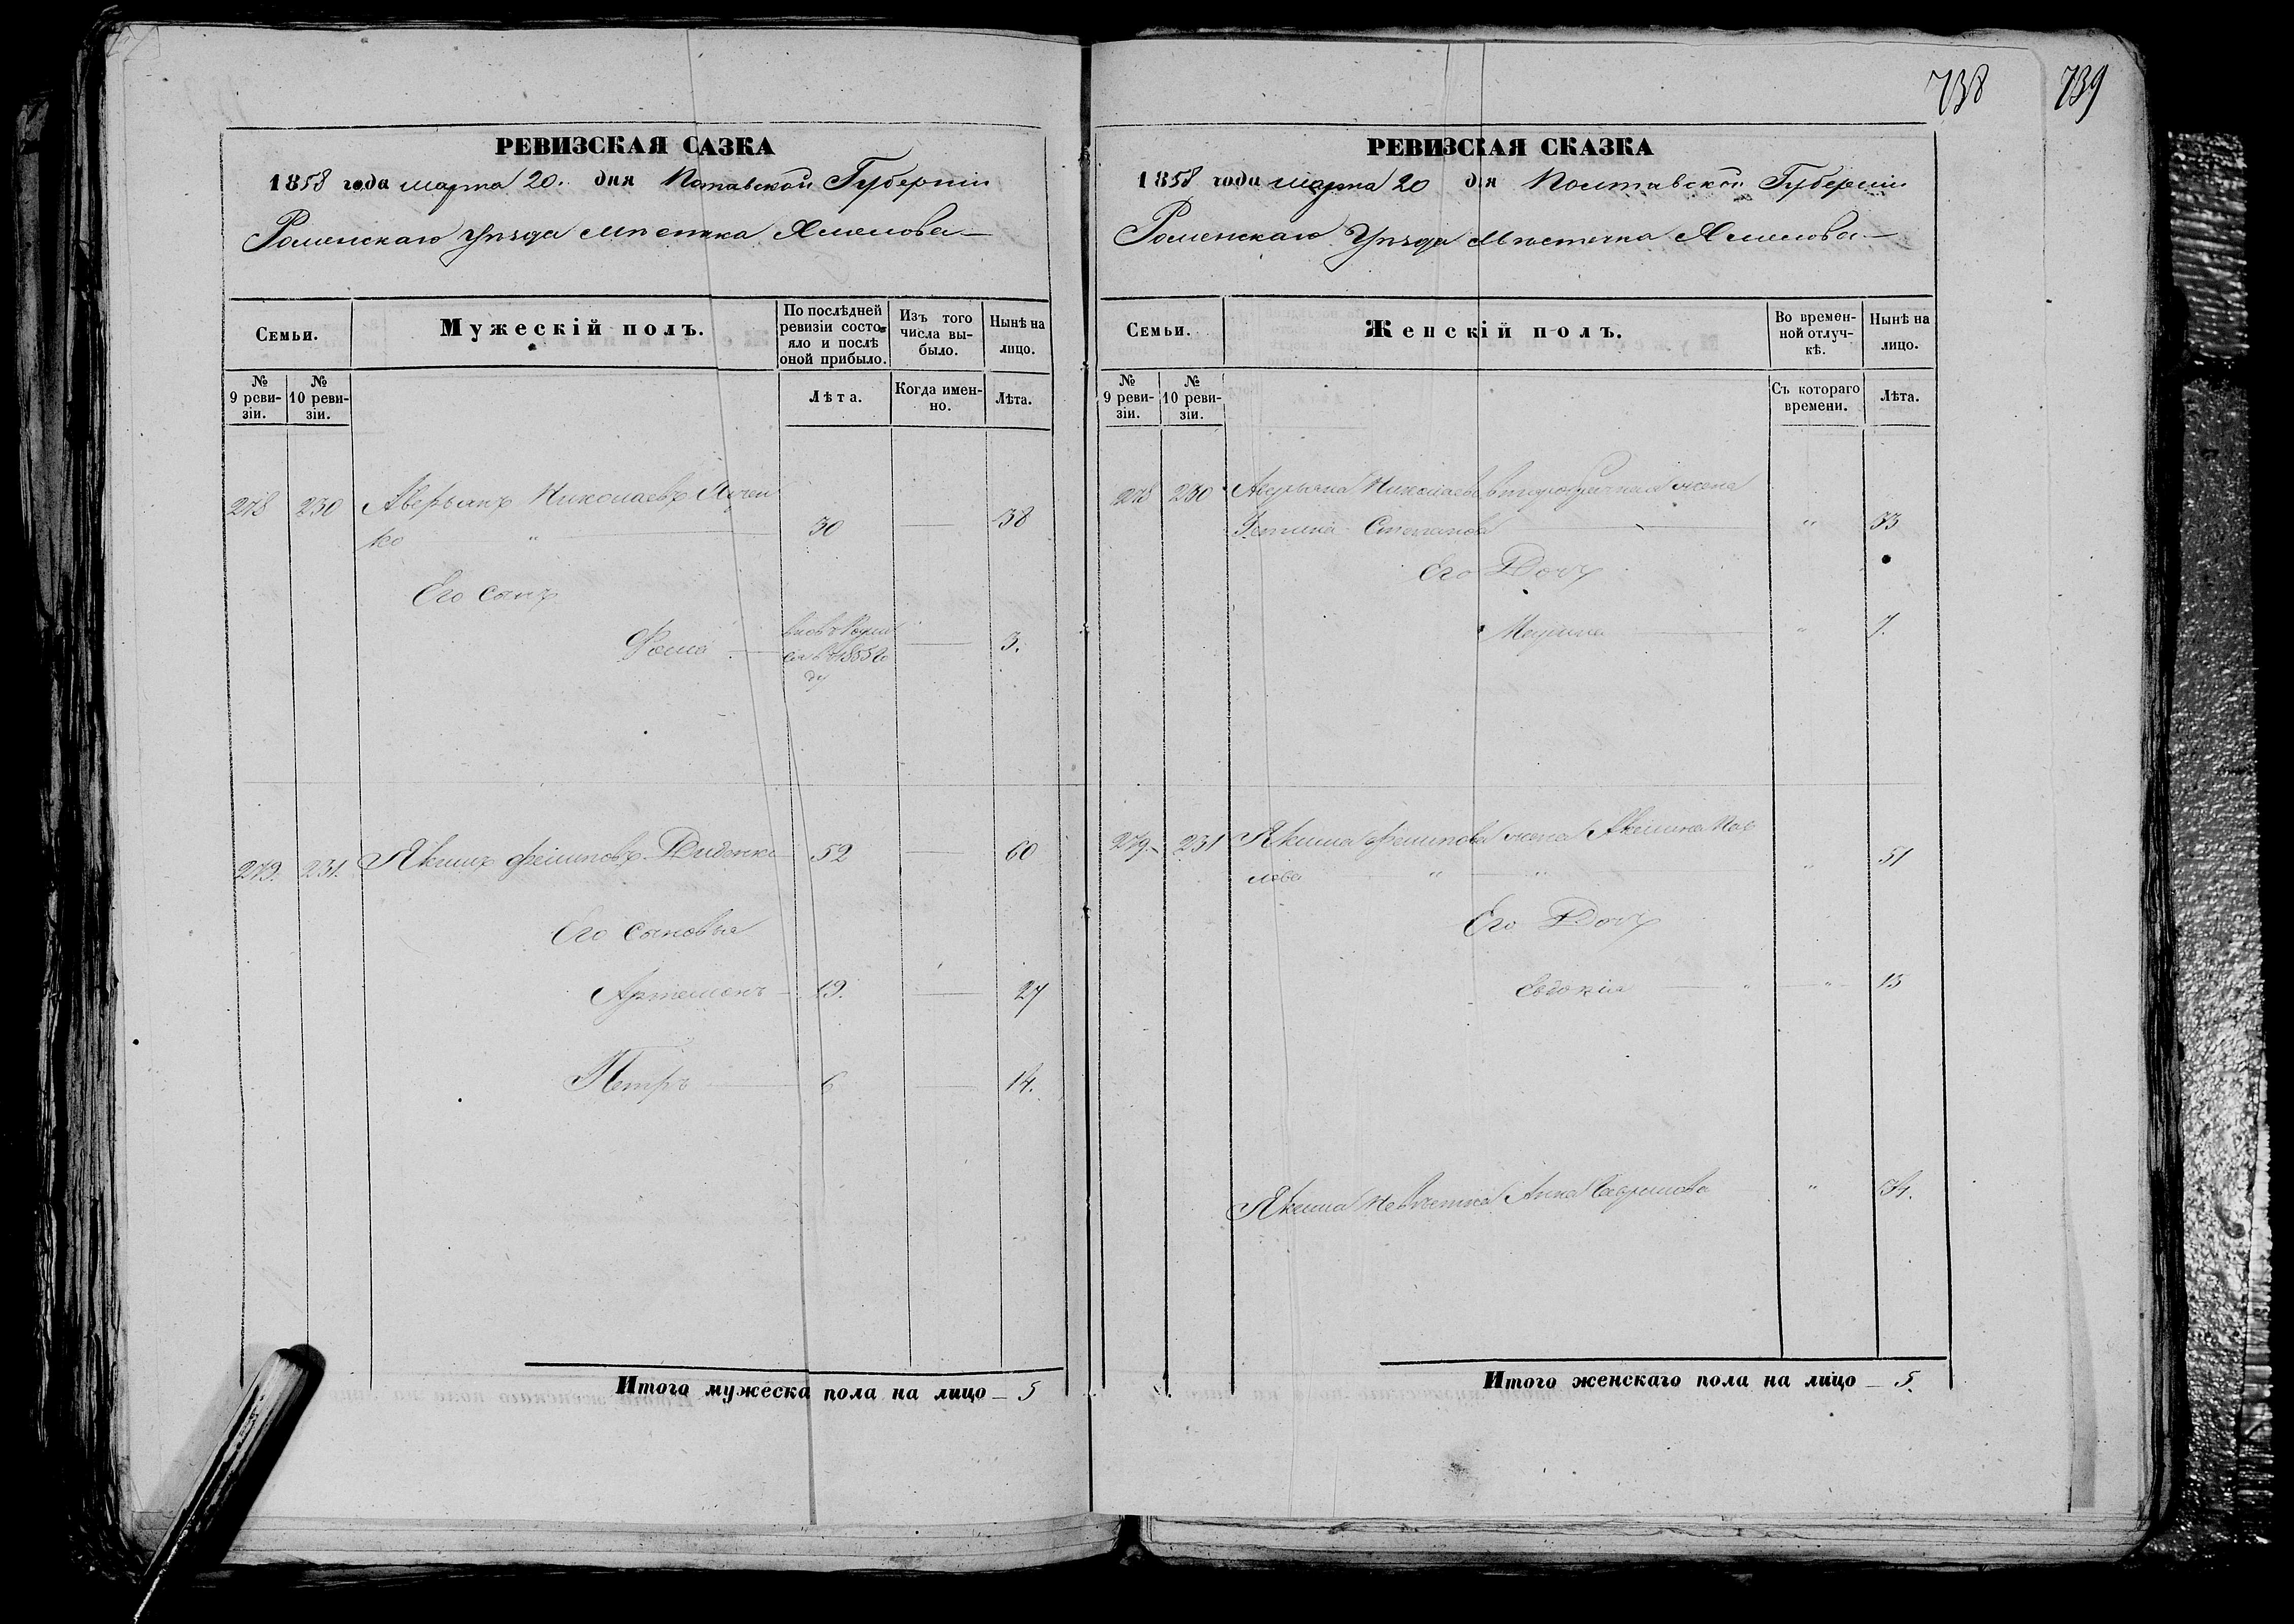 738 739
РЕВИЗСКАЯ САЗКА
1858 года марта 20. дня Потавской Губерніи
Роменскаго Уѣзда мѣстечка Хмелова
Семьи.
Мужескій полъ.
По послѣдней ревизіи состояло и послѣ оной прибыло.
Изъ того числа выбыло.
Нынѣ на лицо.
№ 9 ревизіи.
№ 10 ревизіи.
Лѣта.
Когда именно.
Лѣта.
278 230 Аверьянъ Николаевъ
ко " 30 — 38
Его сынъ
Фома — вновь родил
ся въ 1855 го
ду — 3.
279. 231. Якимъ Филиповъ Диденко 52 — 60
Его сыновья
Артемонъ — 19. — 27
Петръ — 6 — 14.
Итого мужеска пола на лицо — 5
РЕВИЗСКАЯ СКАЗКА
1858 года марта 20 дня Полтавской Губерніи
Роменскаго Уѣзда Мѣстечка Хмелова
Семьи.
Женскій полъ.
Во временной отлучкѣ.
Нынѣ на лицо.
№ 9 ревизіи.
№ 10 ревизіи.
Съ котораго времени.
Лѣта.
278 230 Аверьяна Николаева второбрачная жена
Степанова " 33
Его Дочь
Марина — " 7.
279. 231 Якима Филипова жена Акилина Пав
лова " " " 51
Его Дочь
Евдокія — " — " — 15
Якима Невѣстка Анна " 34.
Итого женскаго пола на лицо — 5.